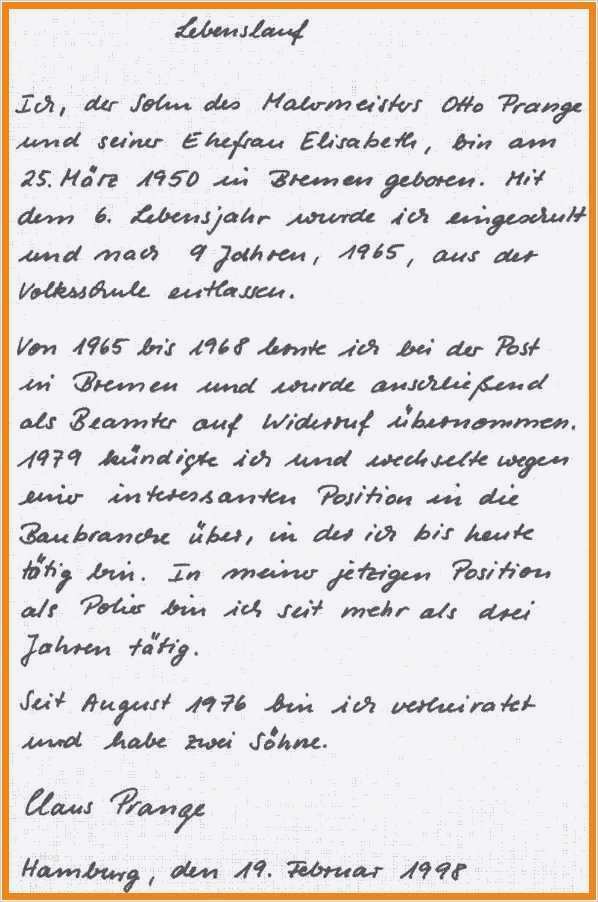 Lebenslauf
Ich, der Sohn des Malermeisters Otto Prange
und seiner Ehefrau Elisabeth, bin am
25. März 1950 in Bremen geboren. Mit
dem 6. Lebensjahr wurde ich eingeschult
und nach 9 Jahren, 1965, aus der
Volksschule entlassen.
Von 1965 bis 1968 lernte ich bei der Post
in Bremen und wurde anschließend
als Beamter auf Widerruf übernommen.
1979 kündigte ich und wechselte wegen
einer interessanten Position in die
Baubranche über, in der ich bis heute
tätig bin. In meiner jetzigen Position
als Polier bin ich seit mehr als drei
Jahren tätig.
Seit August 1976 bin ich verheiratet
und habe zwei Söhne.
Claus Prange
Hamburg, den 19. Februar 1998